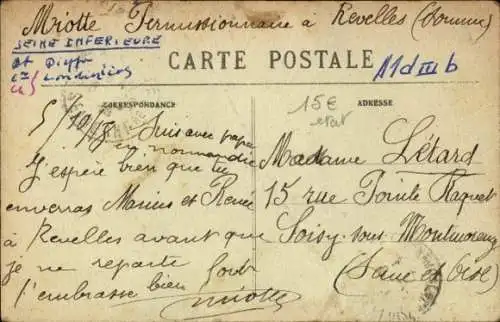 Miotte Permissionnaire à Revelles (Somme)
SEINE INFERIEURE
CARTE POSTALE
A1dIIIb
CORRESPONDANCE
ADRESSE
15€
état
5/10/18 Suis avec papa
en normandie
J'espère bien que tu
enverras Marius et Renée
à Revelles avant que
je ne reparte
t'embrasse bien
Miotte
Madame Létard
15 rue Pointe Raquet
Soisy-sous-Montmorency
(Seine et Oise)